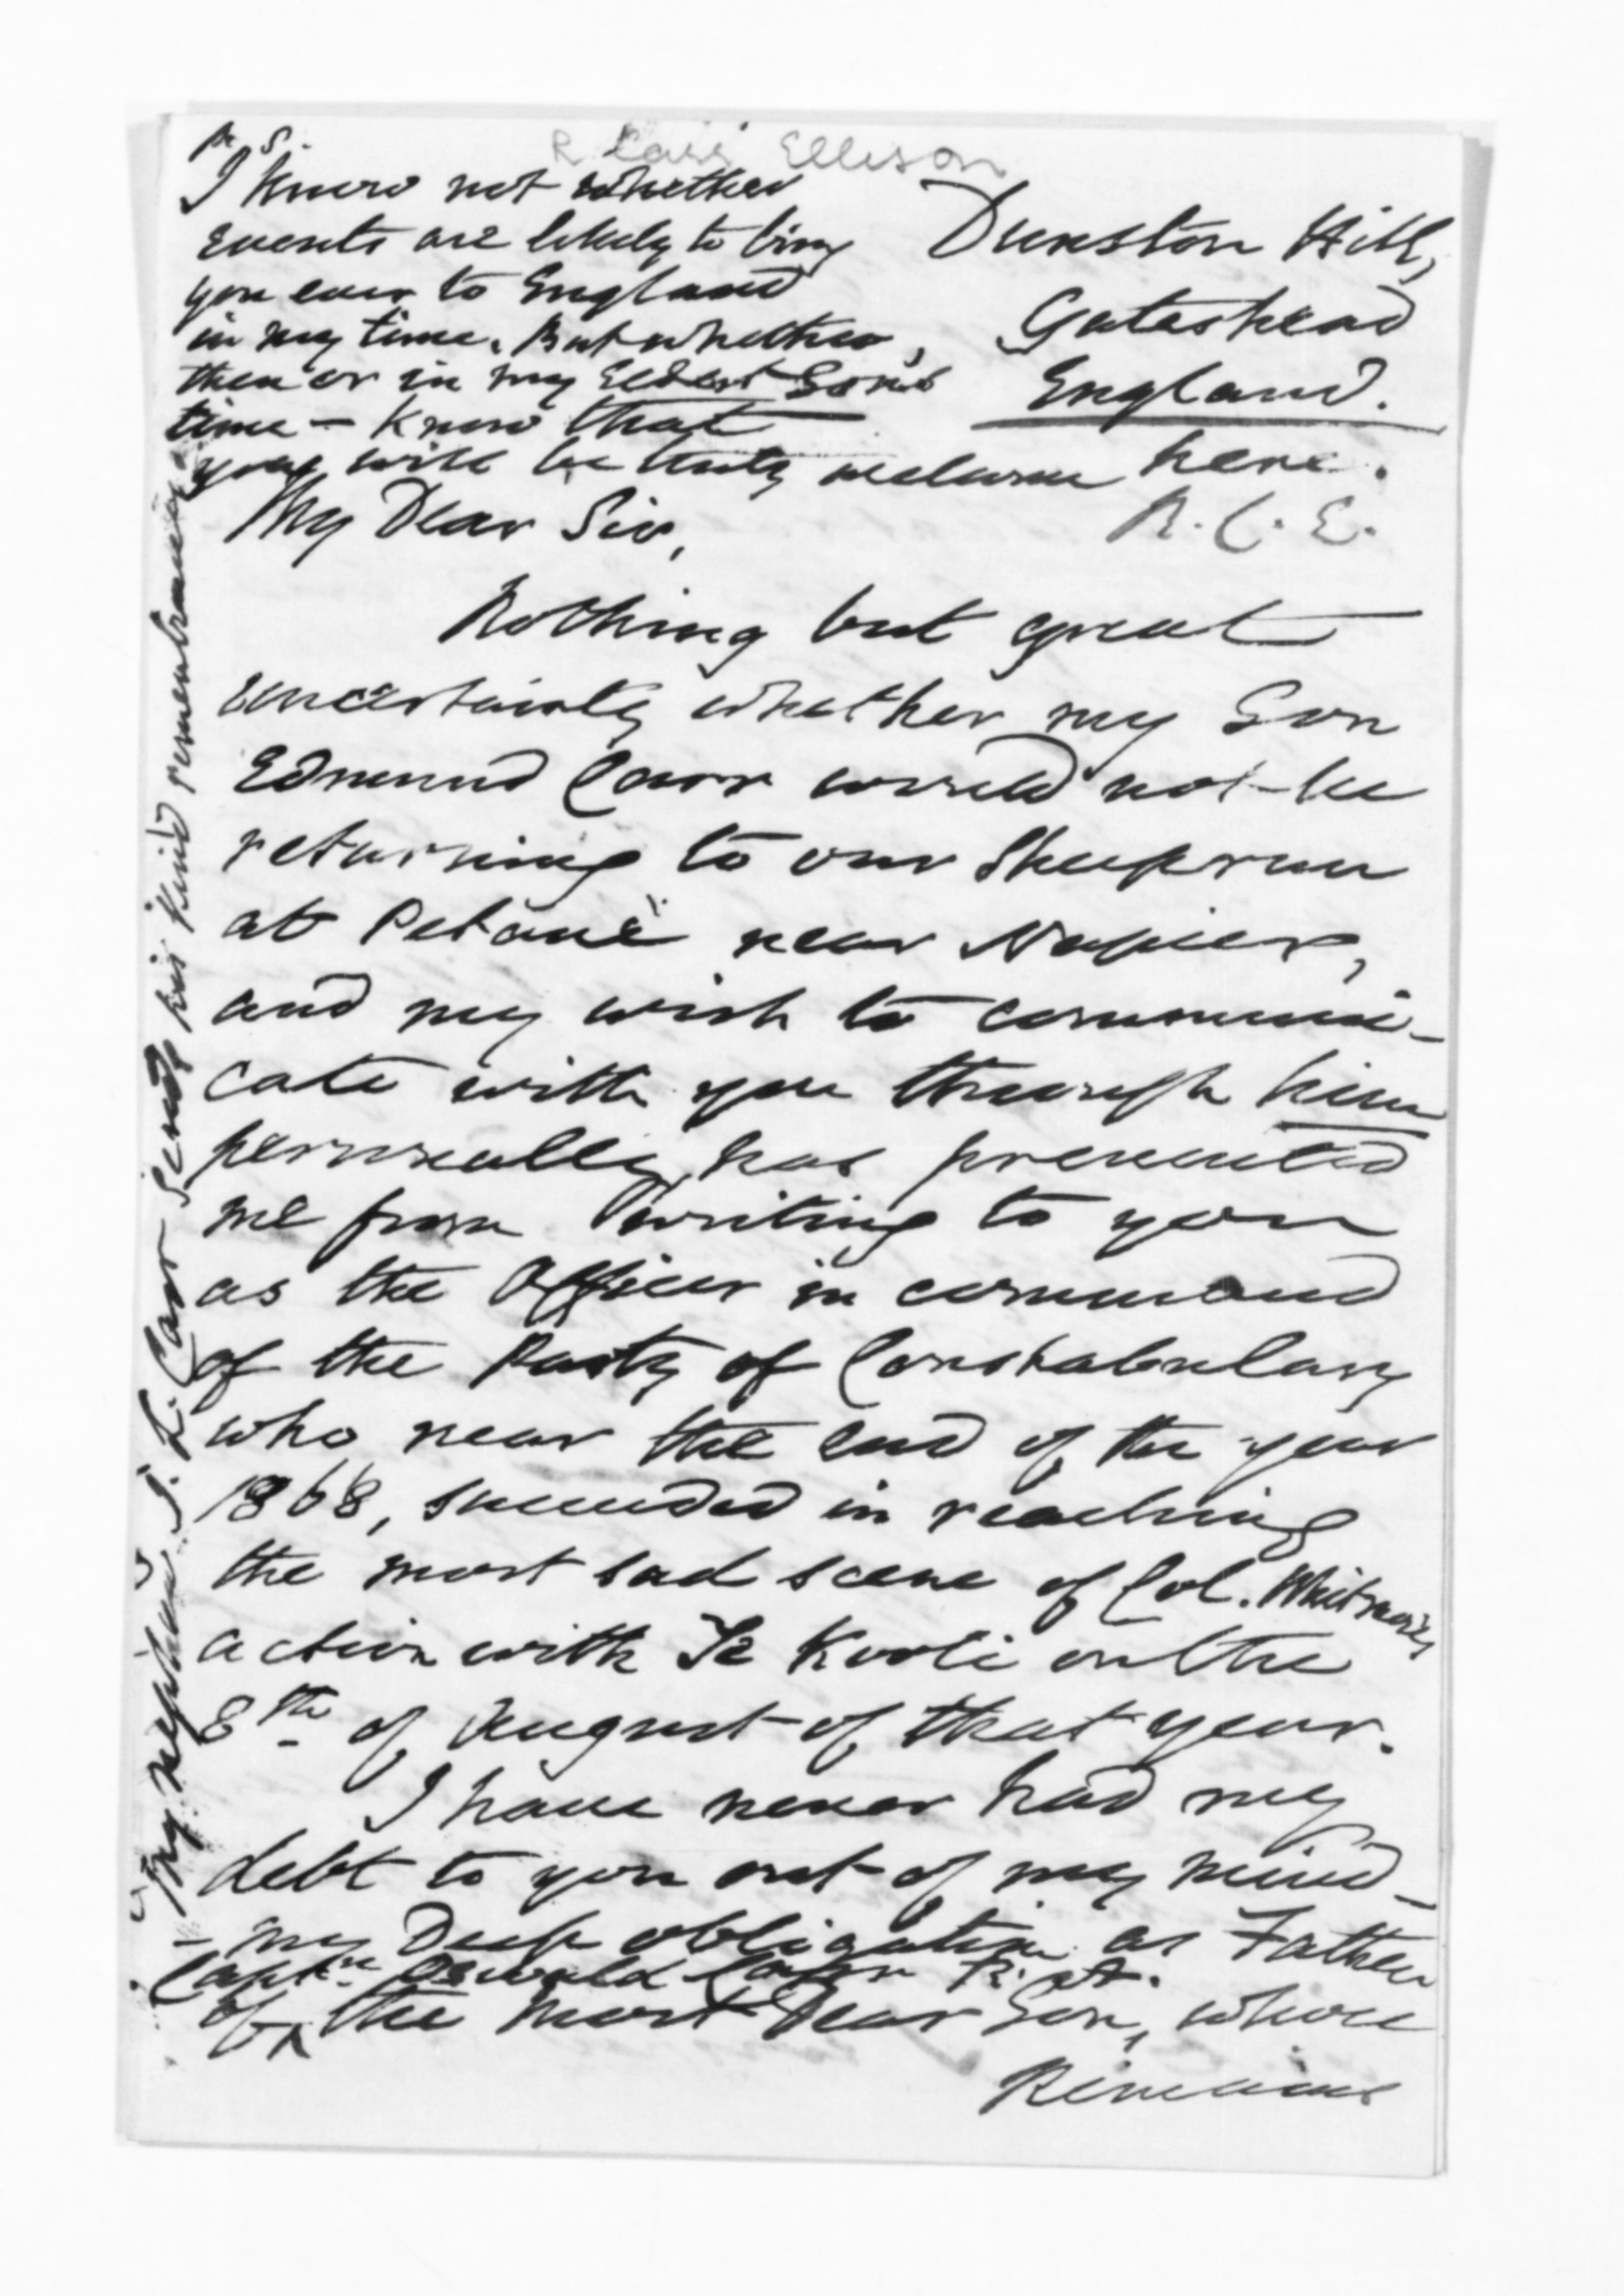 R Carr Ellison
P.S.
I know not whether
events are likely to bring
you ever to England
in my time. But whether,
then or in my Eldest Son's
time – know that
you will be truly welcome here.
R. C. E.
Dunston Hill,
Gateshead
England.
My Dear Sir,
Nothing but great
uncertainty whether my Son
Edmund Carr would not be
returning to our Sheeprun
at Petane near Napier,
and my wish to communi-
cate with you through him
personally, has prevented
me from writing to you
as the Officer in command
of the Party of Constabulary
who near the end of the year
1868, succeeded in reaching
the most sad scene of Col. Whitmore's
action with Te Kooti on the
8th of August of that year.
I have never had my
debt to you out of my mind –
– my Deep obligation as Father
Captn. Oswald Carr R. A.
of ^ the most Dear Son, whose
Remains
My nephew J. L. Carr sends his kind remembrances